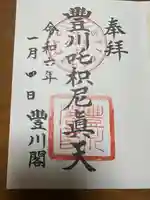 奉拝
豊川吒枳尼眞天
令和六年
一月四日
豊川閣